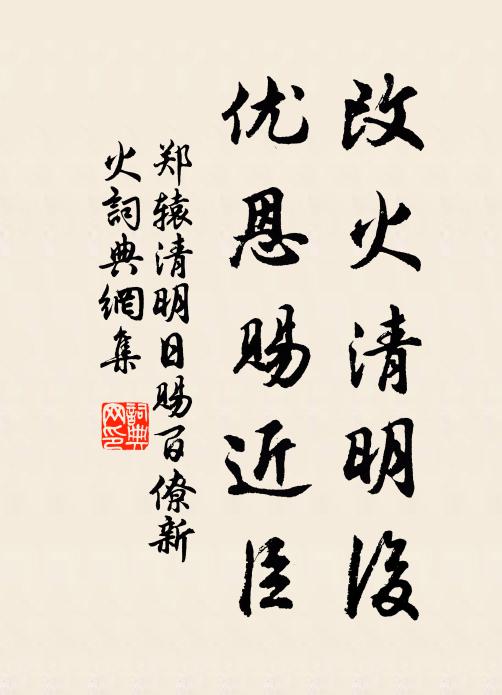 改火清明後
优恩赐近臣
郑辕清明日赐百僚新
火詞典網集
詞典网印